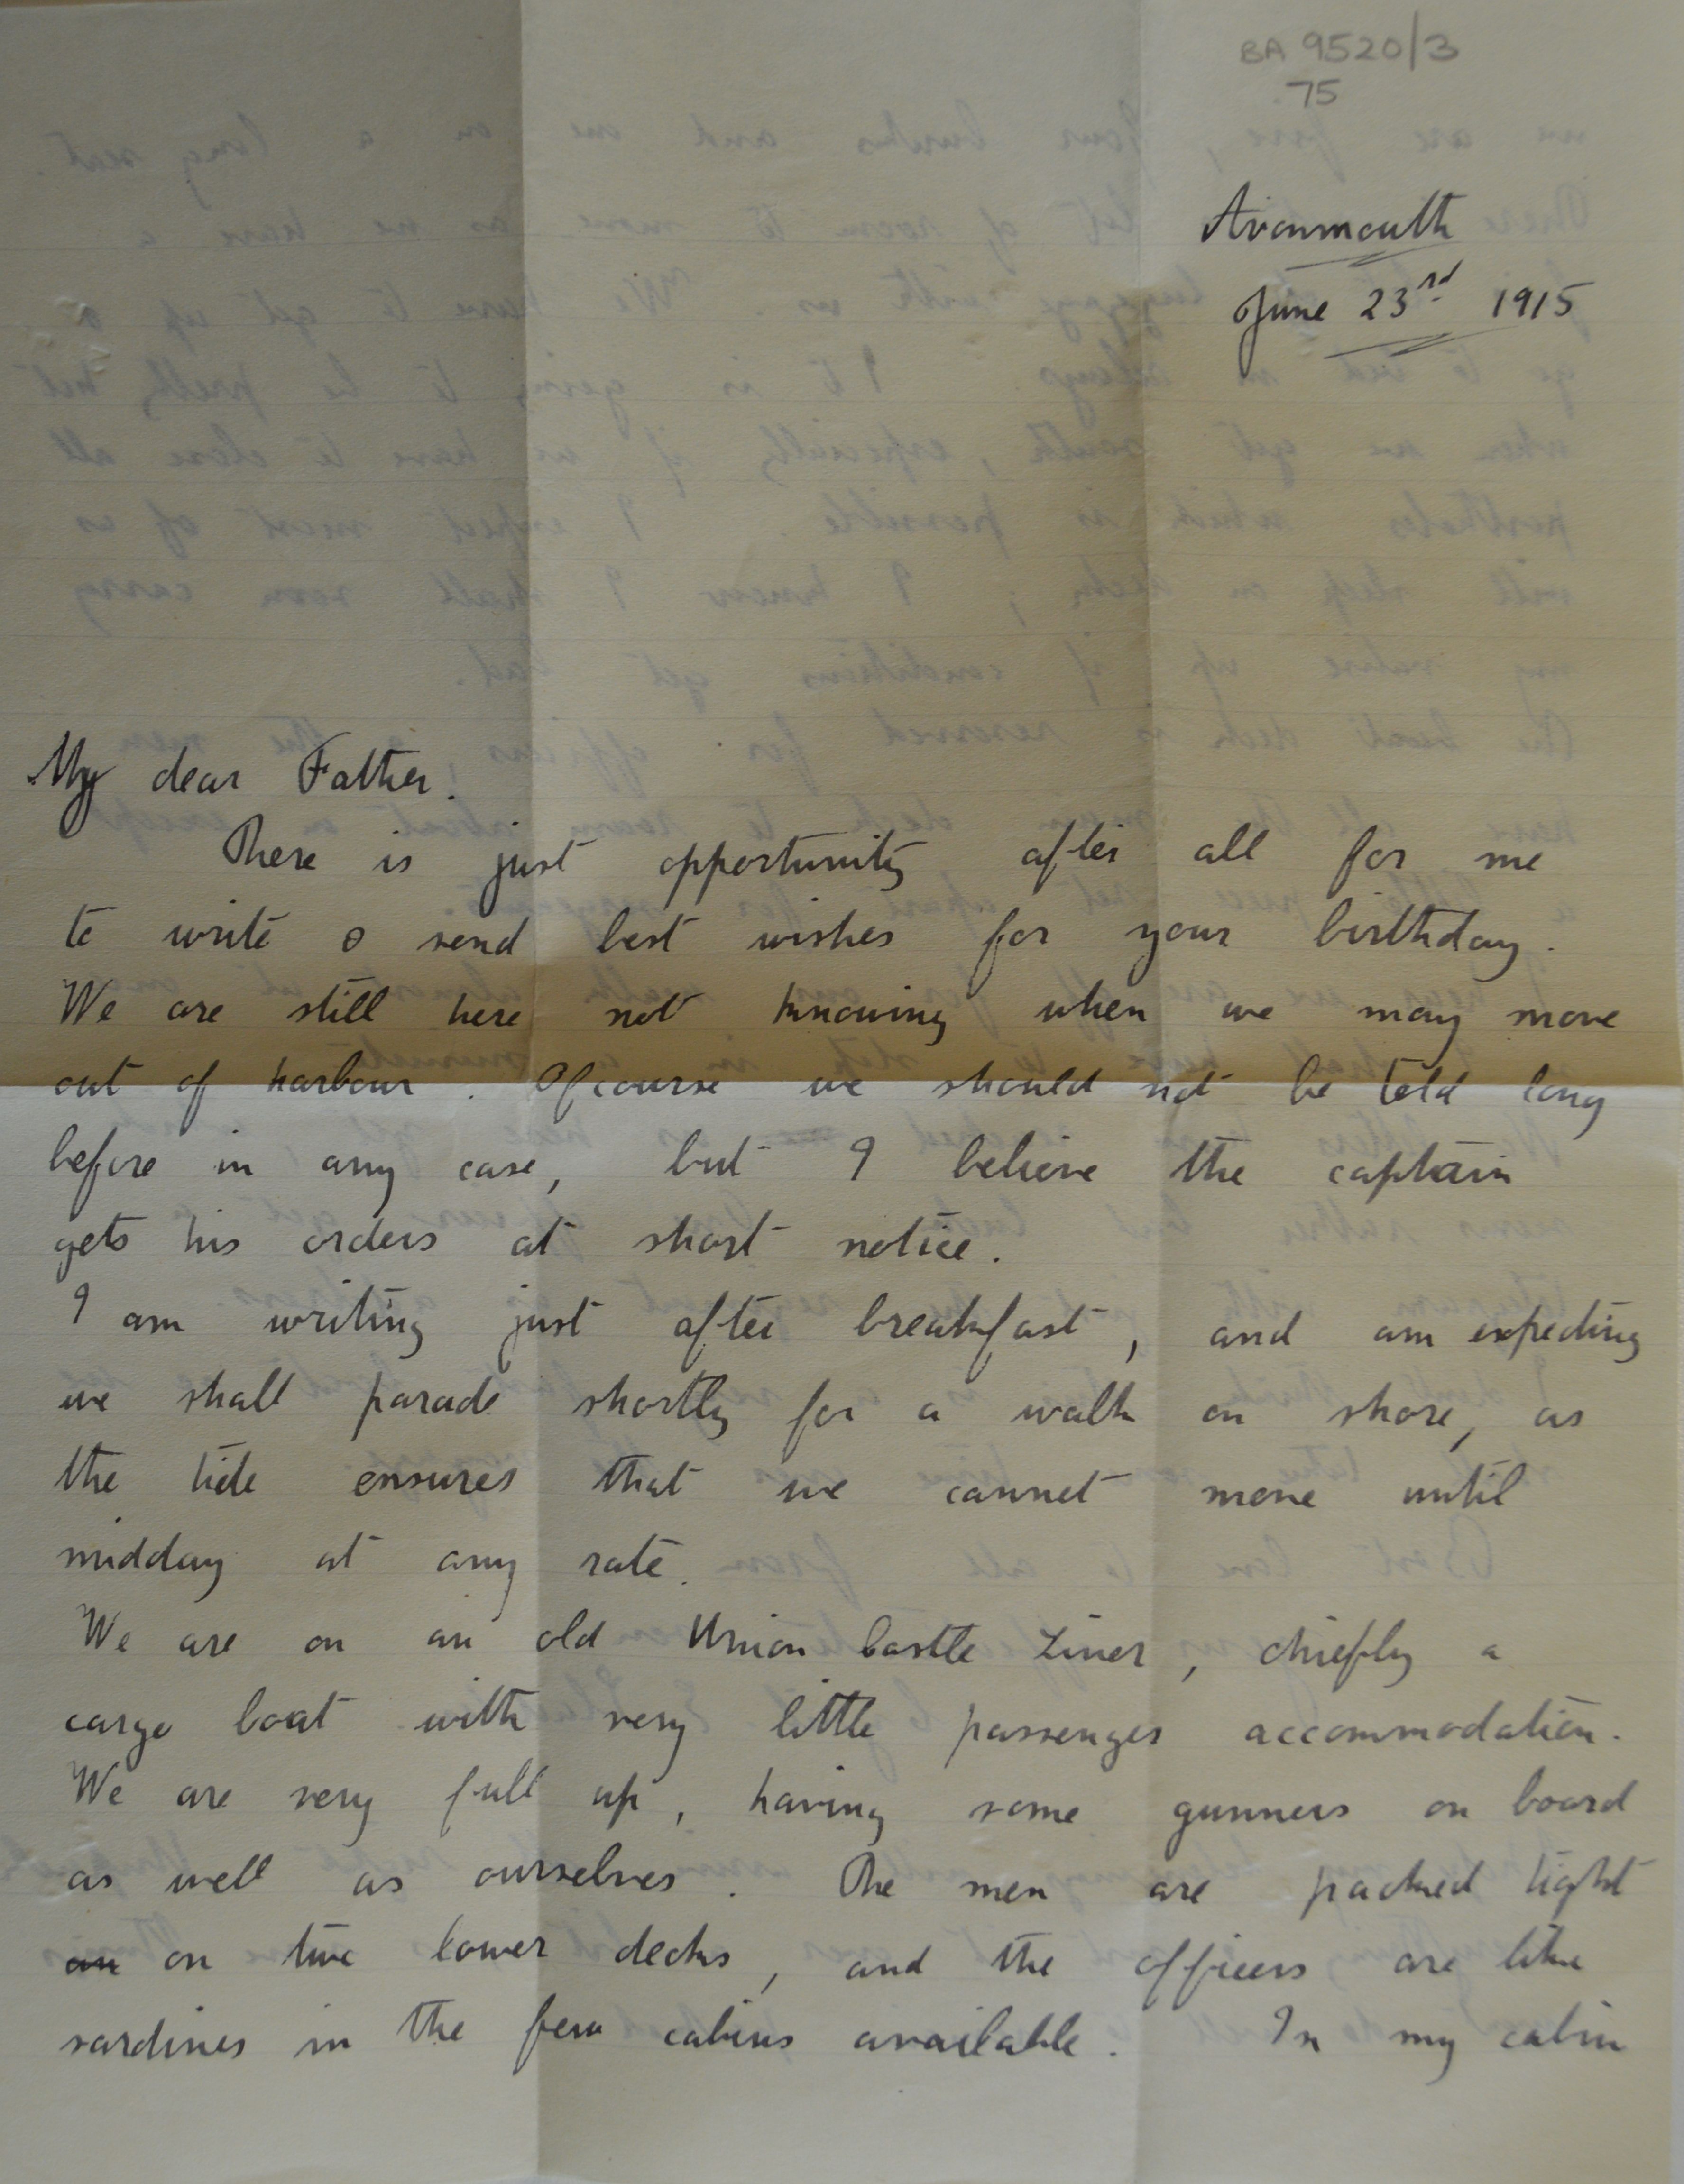 BA 9520/3
75
Avonmouth
June 23rd 1915
My dear Father.
There is just opportunity after all for me
to write & send best wishes for your birthday.
We are still here not knowing when we may move
out of harbour. Of course we should not be told long
before in any case, but I believe the captain
gets his orders at short notice.
I am writing just after breakfast, and am expecting
we shall parade shortly for a walk on shore, as
the tide ensures that we cannot move until
midday at any rate.
We are on an old Union Castle Liner, chiefly a
cargo boat with very little passenger accommodation.
We are very full up, having some gunners on board
as well as ourselves. The men are packed tight
on two lower decks, and the officers are like
sardines in the few cabins available. In my cabin